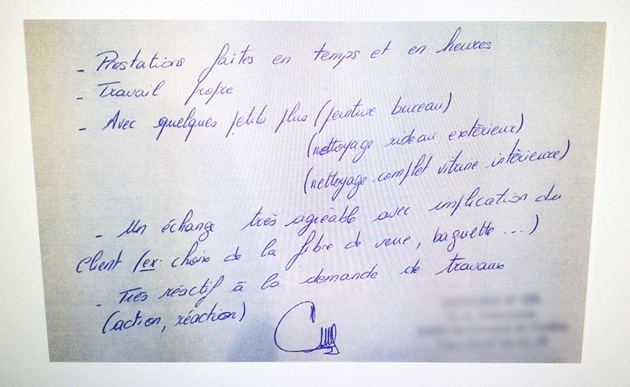 - Prestations faites en temps et en heures
- Travail propre
- Avec quelques petits plus (peinture bureau)
(nettoyage rideau extérieur)
(nettoyage complet vitrine intérieure)
- Un échange très agréable avec implication du
client (ex: choix de la fibre de verre, baguette...)
- Très réactif à la demande de travaux
(action, réaction)